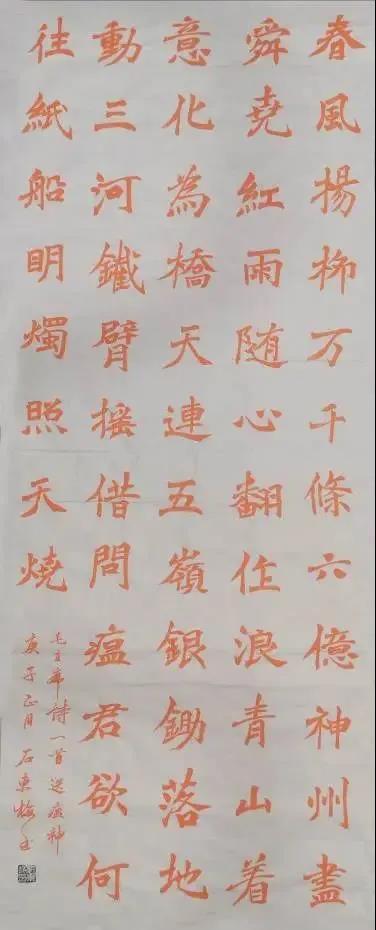 春風揚柳万千條六億神州盡
舜堯紅雨随心翻作浪青山着
意化為橋天連五嶺銀鋤落地
動三河鐵臂摇借問瘟君欲何
往紙船明燭照天燒
毛主席詩一首送瘟神
庚子正月石東梅书